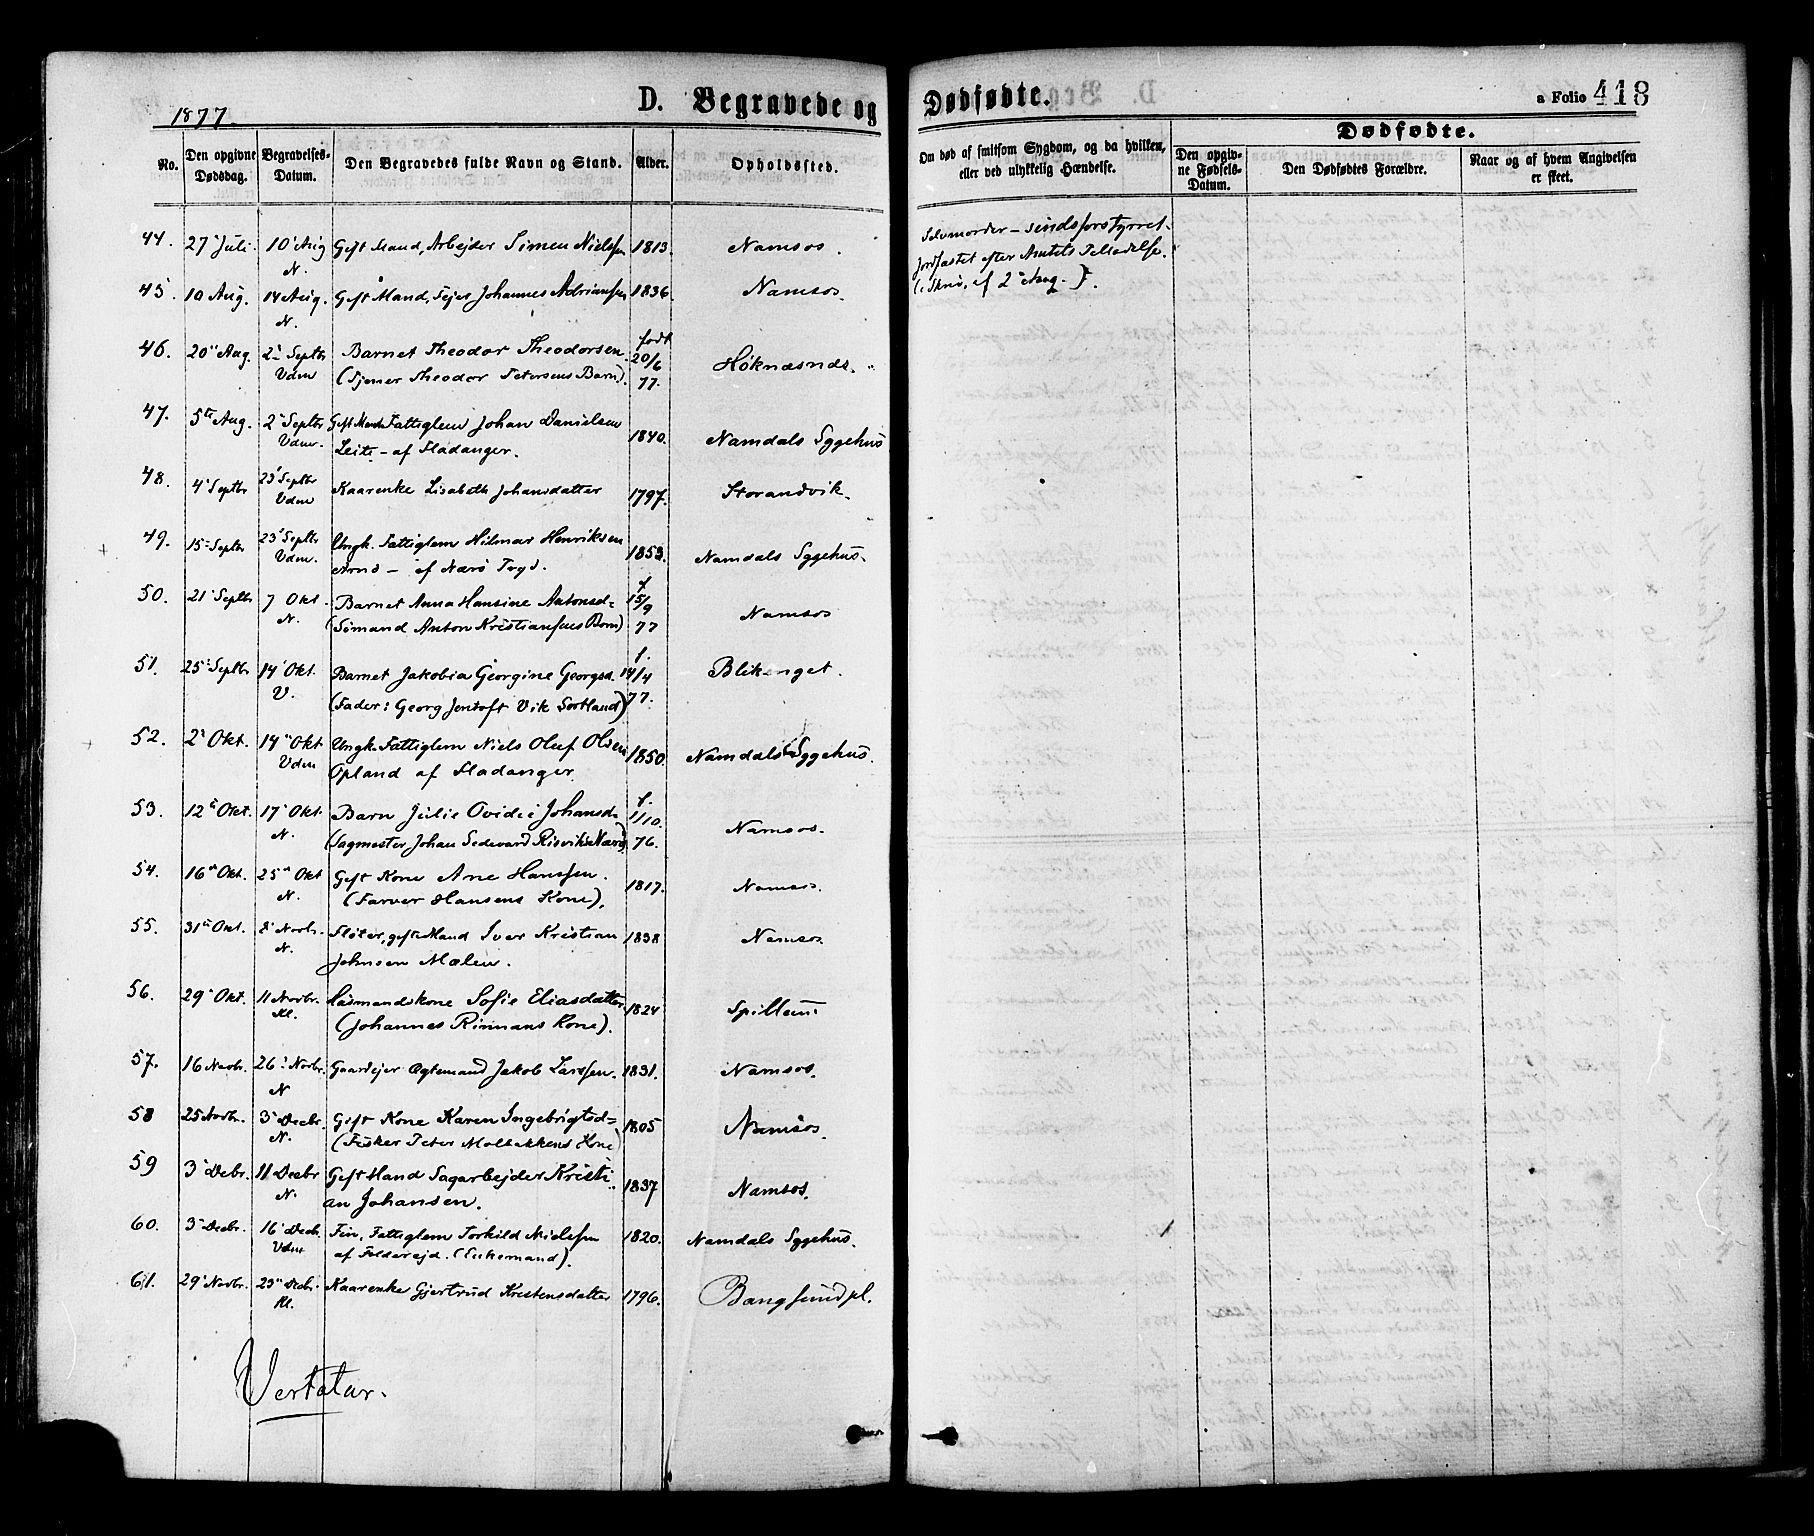 1877.
D. Begravede og Dødfødte.
a Folio 418
No. Den opgivne Dødsdag. Begravelses-Datum. Den Begravedes fulde Navn og Stand. Alder. Opholdssted.
Om død af smitsom Sygdom, og da hvilken, eller ved ulykkelig Hændelse.
Dødfødte.
Den opgivne Fødsels-Datum. Den Dødfødtes Forældre. Naar og af hvem Angivelsen er skeet.
44. 27 Juli. 10 Aug N. Gift Mand, Arbejder Simen Nielssen 1813. Namsos.
Selvmorder – sindsforstyrret.
Jordfæstet efter Amtets Tilladelse.
(Skriv. af 2 Aug.).
45. 10 Aug. 14 Aug. N. Gift Mand, Fejer Johannes Adriansen 1836. Namsos.
46. 20 Aug. 2 Septbr Vdm Barnet Theodor Theodorsen født 20/6 77. Höknæsnds.
(Tjener Theodor Petersens Barn).
47. 5te Aug. 2 Septbr Vdm. Gift Mand Fattiglem Johan Danielsen 1840. Namdals Sygehus
Leite – af Fladanger.
48. 4 Septbr 23 Septbr Vdm Kaarenke Lisabeth Johansdatter 1797. Storandvik.
49. 15 Septbr 23 Septbr Vdm. Ungk. Fattiglem Hilmar Henriksen 1853. Namdals Sygehus.
Arnö – af Nærö Pgd.
50. 21 Septbr 7 Okt. N. Barnet Anna Hansine Antonsd= f. 15/9 77 Namsos
(Sømand Anton Kristiansens Barn)
51. 25 Septbr 14 Okt. V. Barnet Jakobia Georgine Georgsd. f. 14/4 77. Blikenget.
(Fader: Georg Jentoft Vik Sortland)
52. 2 Okt. 14 Okt Vdm Ungk. Fattiglem Niels Oluf Olsen 1850. Namdals Sygehus.
Opland af Fladanger.
53. 12 Okt. 17 Okt. N. Barn Julie Ovidie Johansd= f. 1/10. 76. Namsos.
(Sagmester Johan Sedevard Risvik Nærö)
54. 16 Okt. 25 Okt N. Gift Kone Ane Hanssen. 1817. Namsos.
(Farver Hansens Kone),
55. 31 Okt. 8 Novbr. N. Fløter, gift Mand Iver Kristian 1838 Namsos
Johnsen Mælen.
56. 29 Okt. 11 Novbr. Kl. Husmandskone Sofie Eliasdatter 1824 Spillum
(Johannes Rinnans Kone).
57. 16 Novbr. 26 Novbr. N Gaardejer Ægtemand Jakob Larssen. 1831. Namsos.
58 25 Novbr. 3 Decbr. N. Gift Kone Karen Ingebrigtsd= 1805 Namsos.
(Fisker Peter Molbekkens Kone)
59 3 Debr. 11 Decbr N. Gift Mand Sagarbejder Kristi- 1837 Namsos.
an Johansen.
60. 3 Decbr. 16 Decb. Vdm Fin, Fattiglem Torkild Nielssen 1820. Namdals Sygehus.
af Foldereid. (Enkemand).
61. 29 Novbr. 23 Decbr. Kl. Kaarenke Gjertrud Kristensdatter 1796. Bangsund pl.
Vertatur.